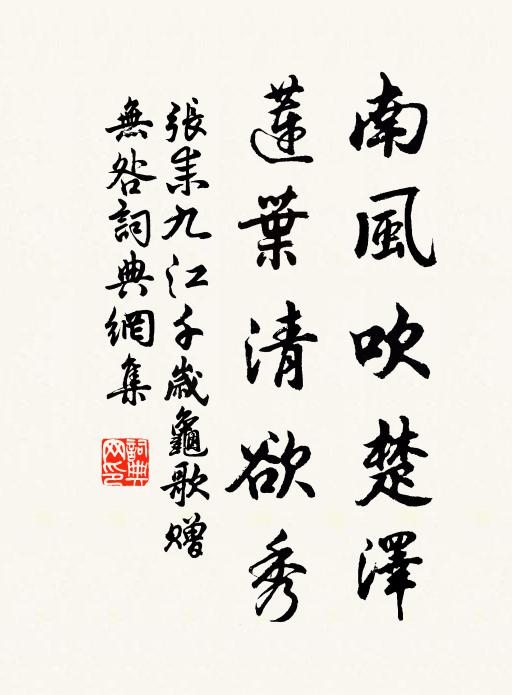 南風吹楚澤
蓮葉清欲秀
張耒九江千歲龜歌贈
無咎詞典網集
詞典
网印